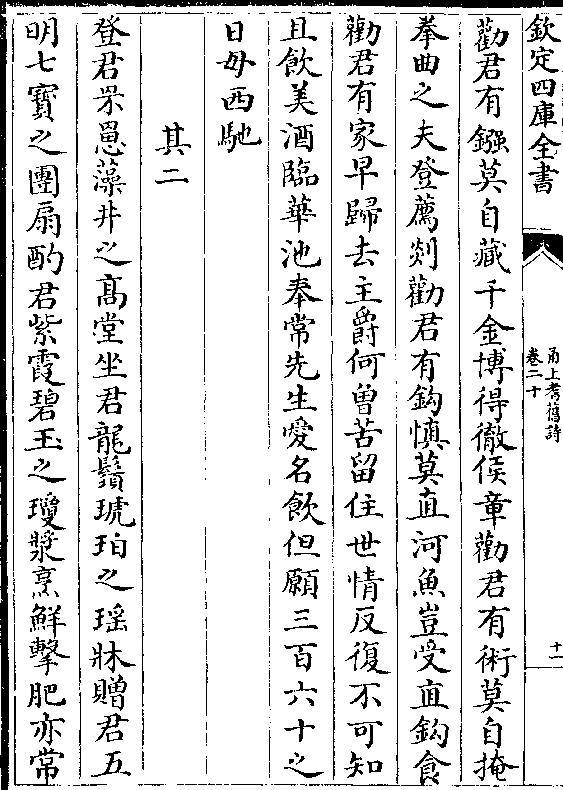 欽定四庫全書
甬上耆舊詩
卷二十
十一
勸君有鏹莫自藏千金博得徹侯章勸君有術莫自掩
拳曲之夫登薦剡勸君有鈎慎莫直河魚豈受直鈎食
勸君有家早歸去主爵何曽苦留住世情反復不可知
且飲美酒臨華池奉常先生愛名飲但願三百六十之
日毋西馳
其二
登君罘罳藻井之髙堂坐君龍鬚琥珀之瑶牀贈君五
明七寳之團扇酌君紫霞碧玉之瓊漿烹鮮擊肥亦常